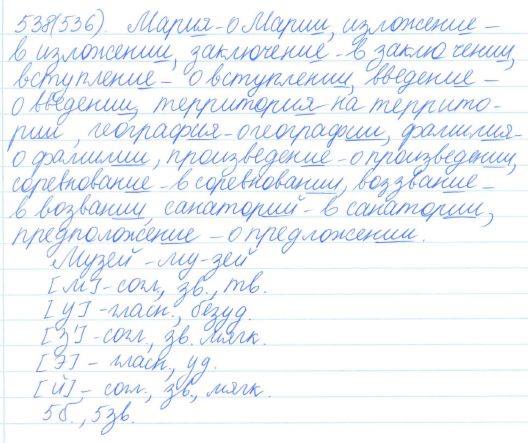 538(536). Мария - о Марии, изложение -
в изложении, заключение - в заключении,
вступление - о вступлении, введение -
о введении, территория - на террито-
рии, география - о географии, фамилия -
о фамилии, произведение - о произведении,
соревнование - в соревновании, воззвание -
в возвании, санаторий - в санатории,
предположение - о предложении.
Музей - му-зей
[М] - согл, зв., тв.
[У] - гласн., безуд.
[З'] - согл, зв. мягк.
[Э] - гласн, уд.
[Й] - согл., зв., мягк.
5б., 5зв.